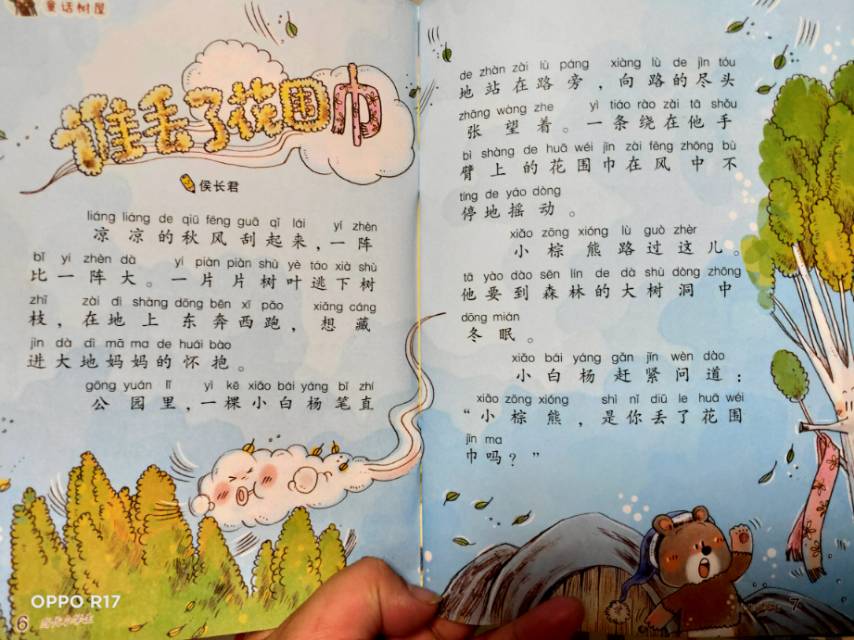 童话树屋
谁丢了花围巾
侯长君
liáng liáng de qiū fēng guā qǐ lái yí zhèn
凉凉的秋风刮起来，一阵
bǐ yí zhèn dà yí piàn piàn shù yè táo xià shù
比一阵大。一片片树叶逃下树
zhī zài dì shàng dōng bēn xī pǎo xiǎng cáng
枝，在地上东奔西跑，想藏
jìn dà dì mā ma de huái bào
进大地妈妈的怀抱。
gōng yuán lǐ yì kē xiǎo bái yáng bǐ zhí
公园里，一棵小白杨笔直
de zhàn zài lù páng xiàng lù de jìn tóu
地站在路旁，向路的尽头
zhāng wàng zhe yì tiáo rào zài tā shǒu
张望着。一条绕在他手
bì shàng de huā wéi jīn zài fēng zhōng bù
臂上的花围巾在风中不
tíng de yáo dòng
停地摇动。
xiǎo zōng xióng lù guò zhèr
小棕熊路过这儿。
tā yào dào sēn lín de dà shù dòng zhōng
他要到森林的大树洞中
dōng mián
冬眠。
xiǎo bái yáng gǎn jǐn wèn dào
小白杨赶紧问道：
xiǎo zōng xióng shì nǐ diū le huā wéi
“小棕熊，是你丢了花围
jīn ma
巾吗？”
OPPO R17
6
7